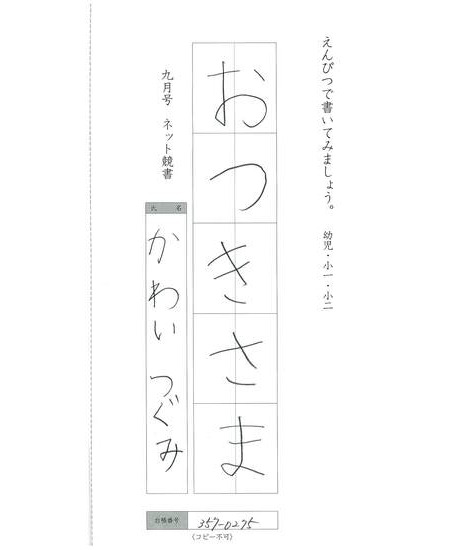 えんぴつで書いてみましょう。　幼児・小一・小二
おつきさま
九月号　ネット競書
氏名
かわい　つぐみ
台帳番号
357-0275
（コピー不可）